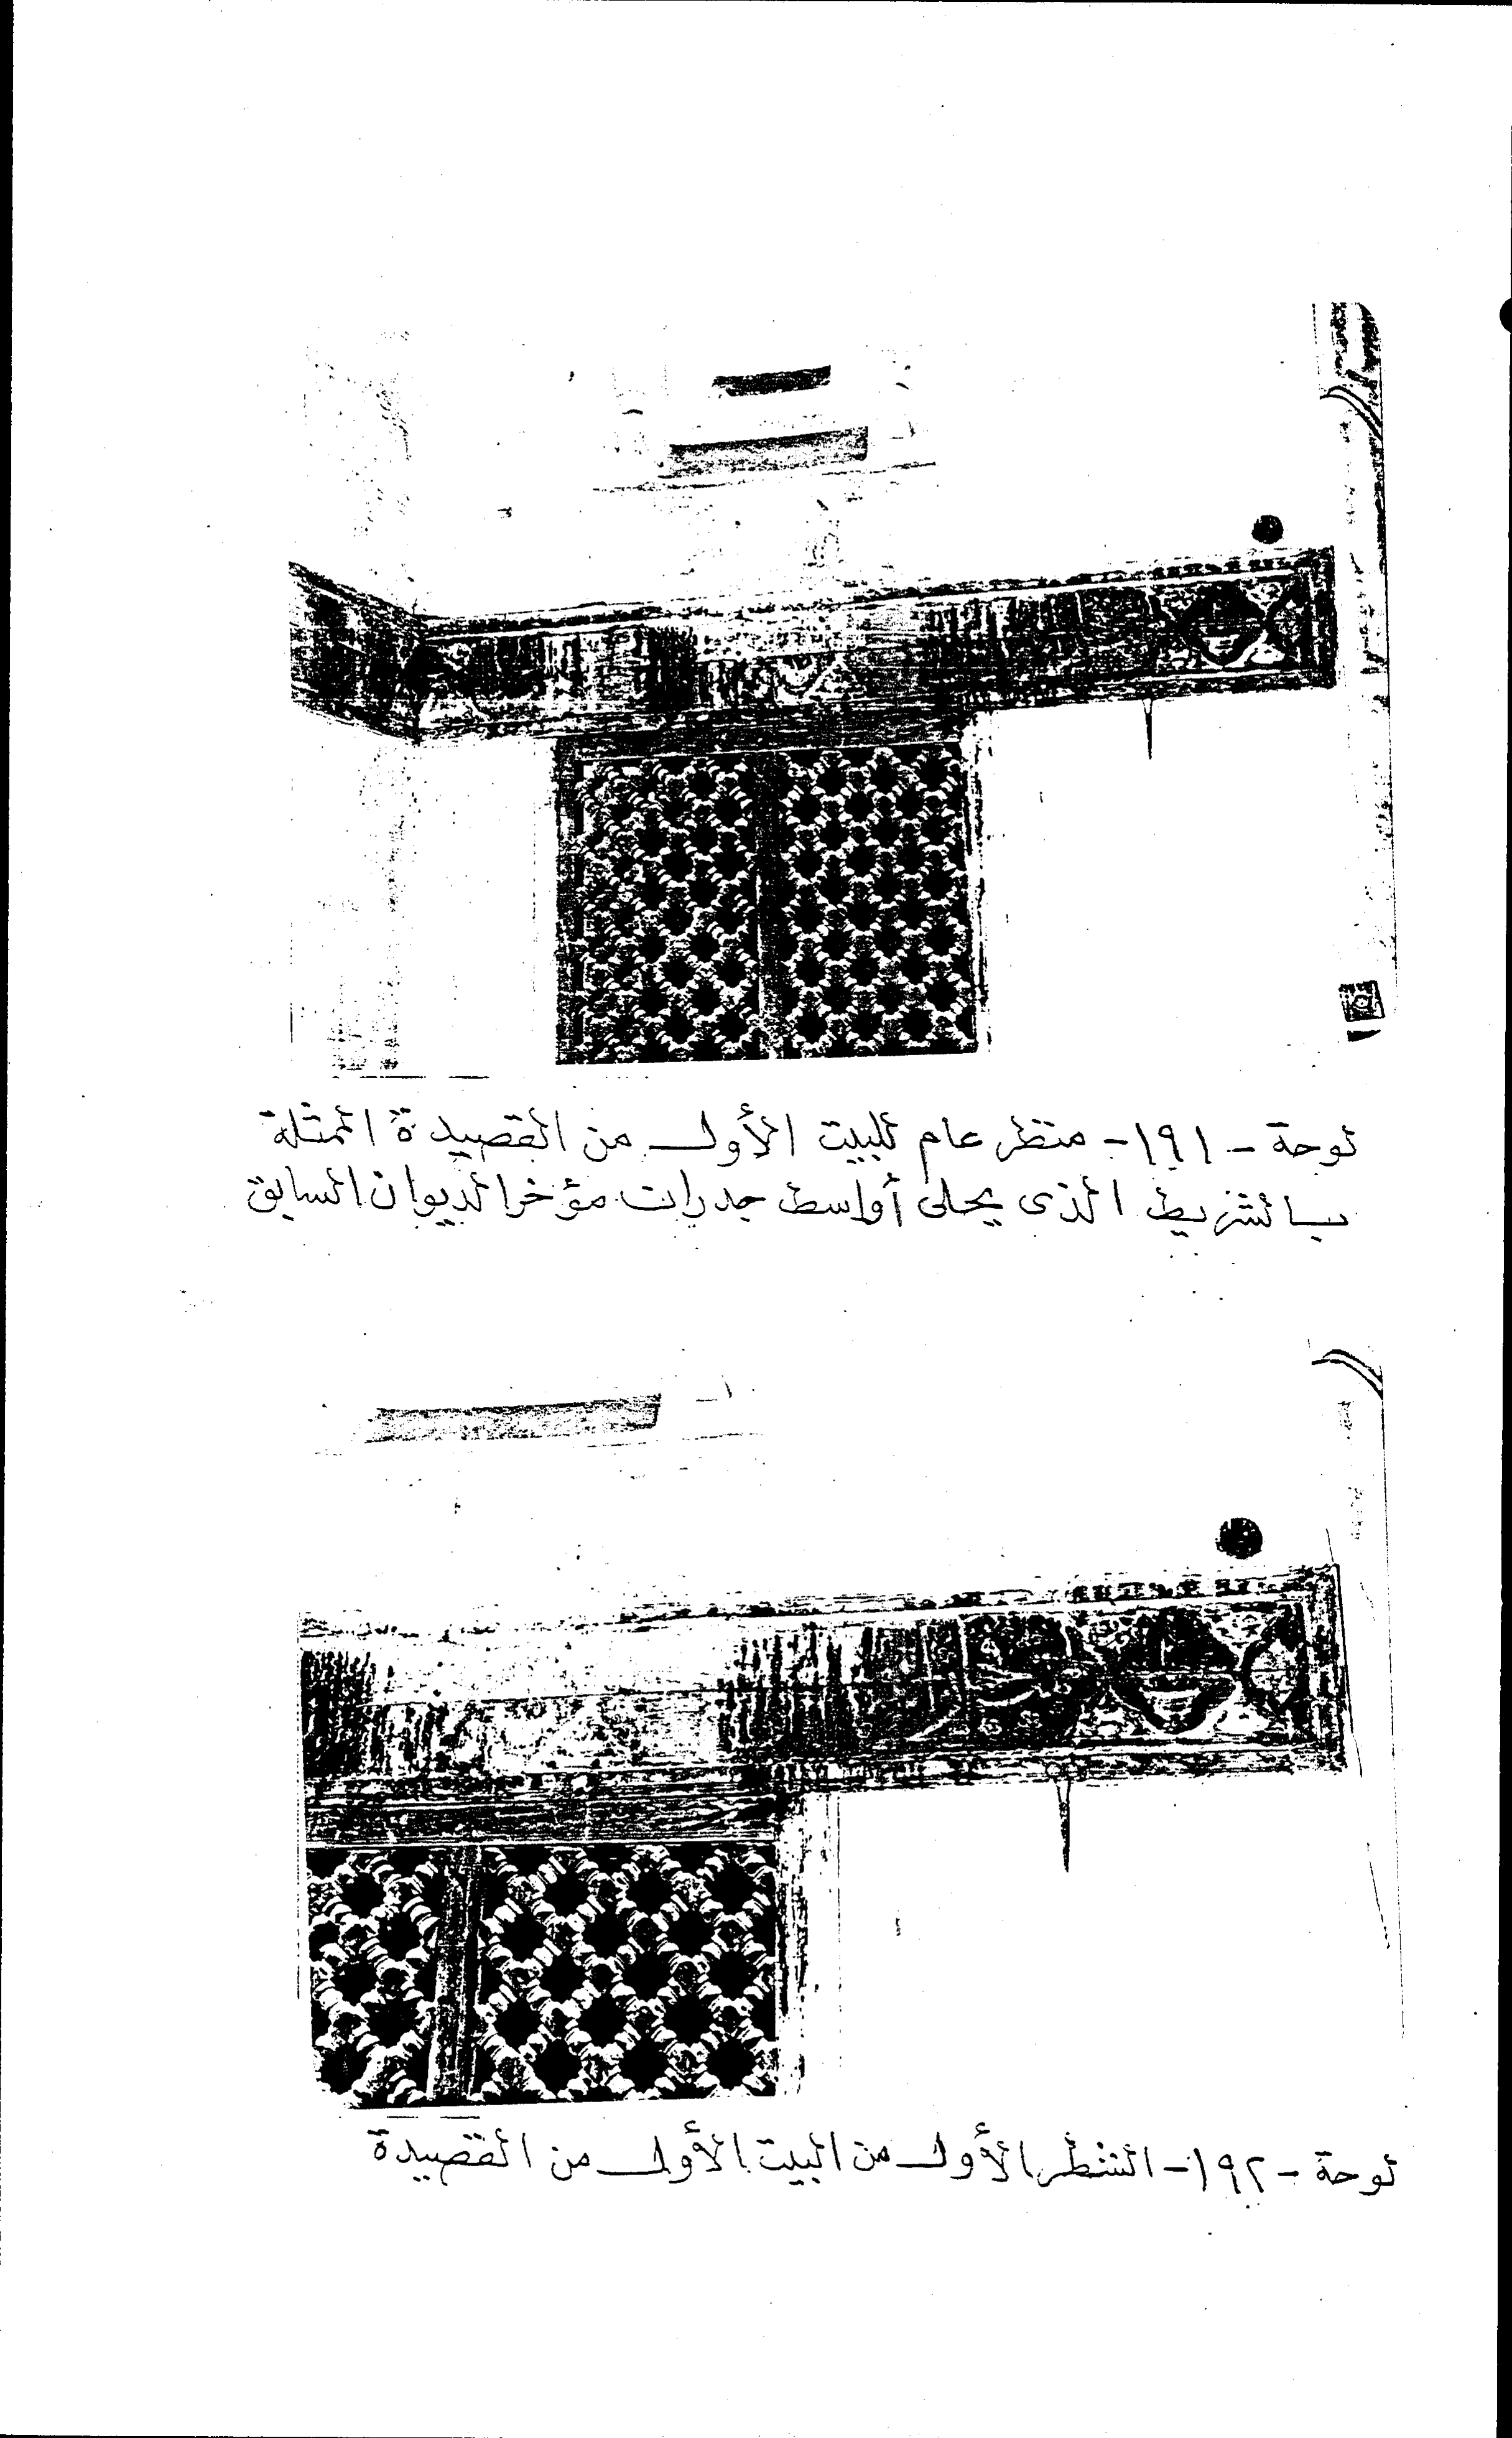 لوحة - ١٩١ - منظر عام للبيت الأول من القصيدة الممثلة
بالشريط الذى يحلى أواسط جدران مؤخر الديوان السابق
لوحة - ١٩٢ - الشطر الأول من البيت الأول من القصيدة